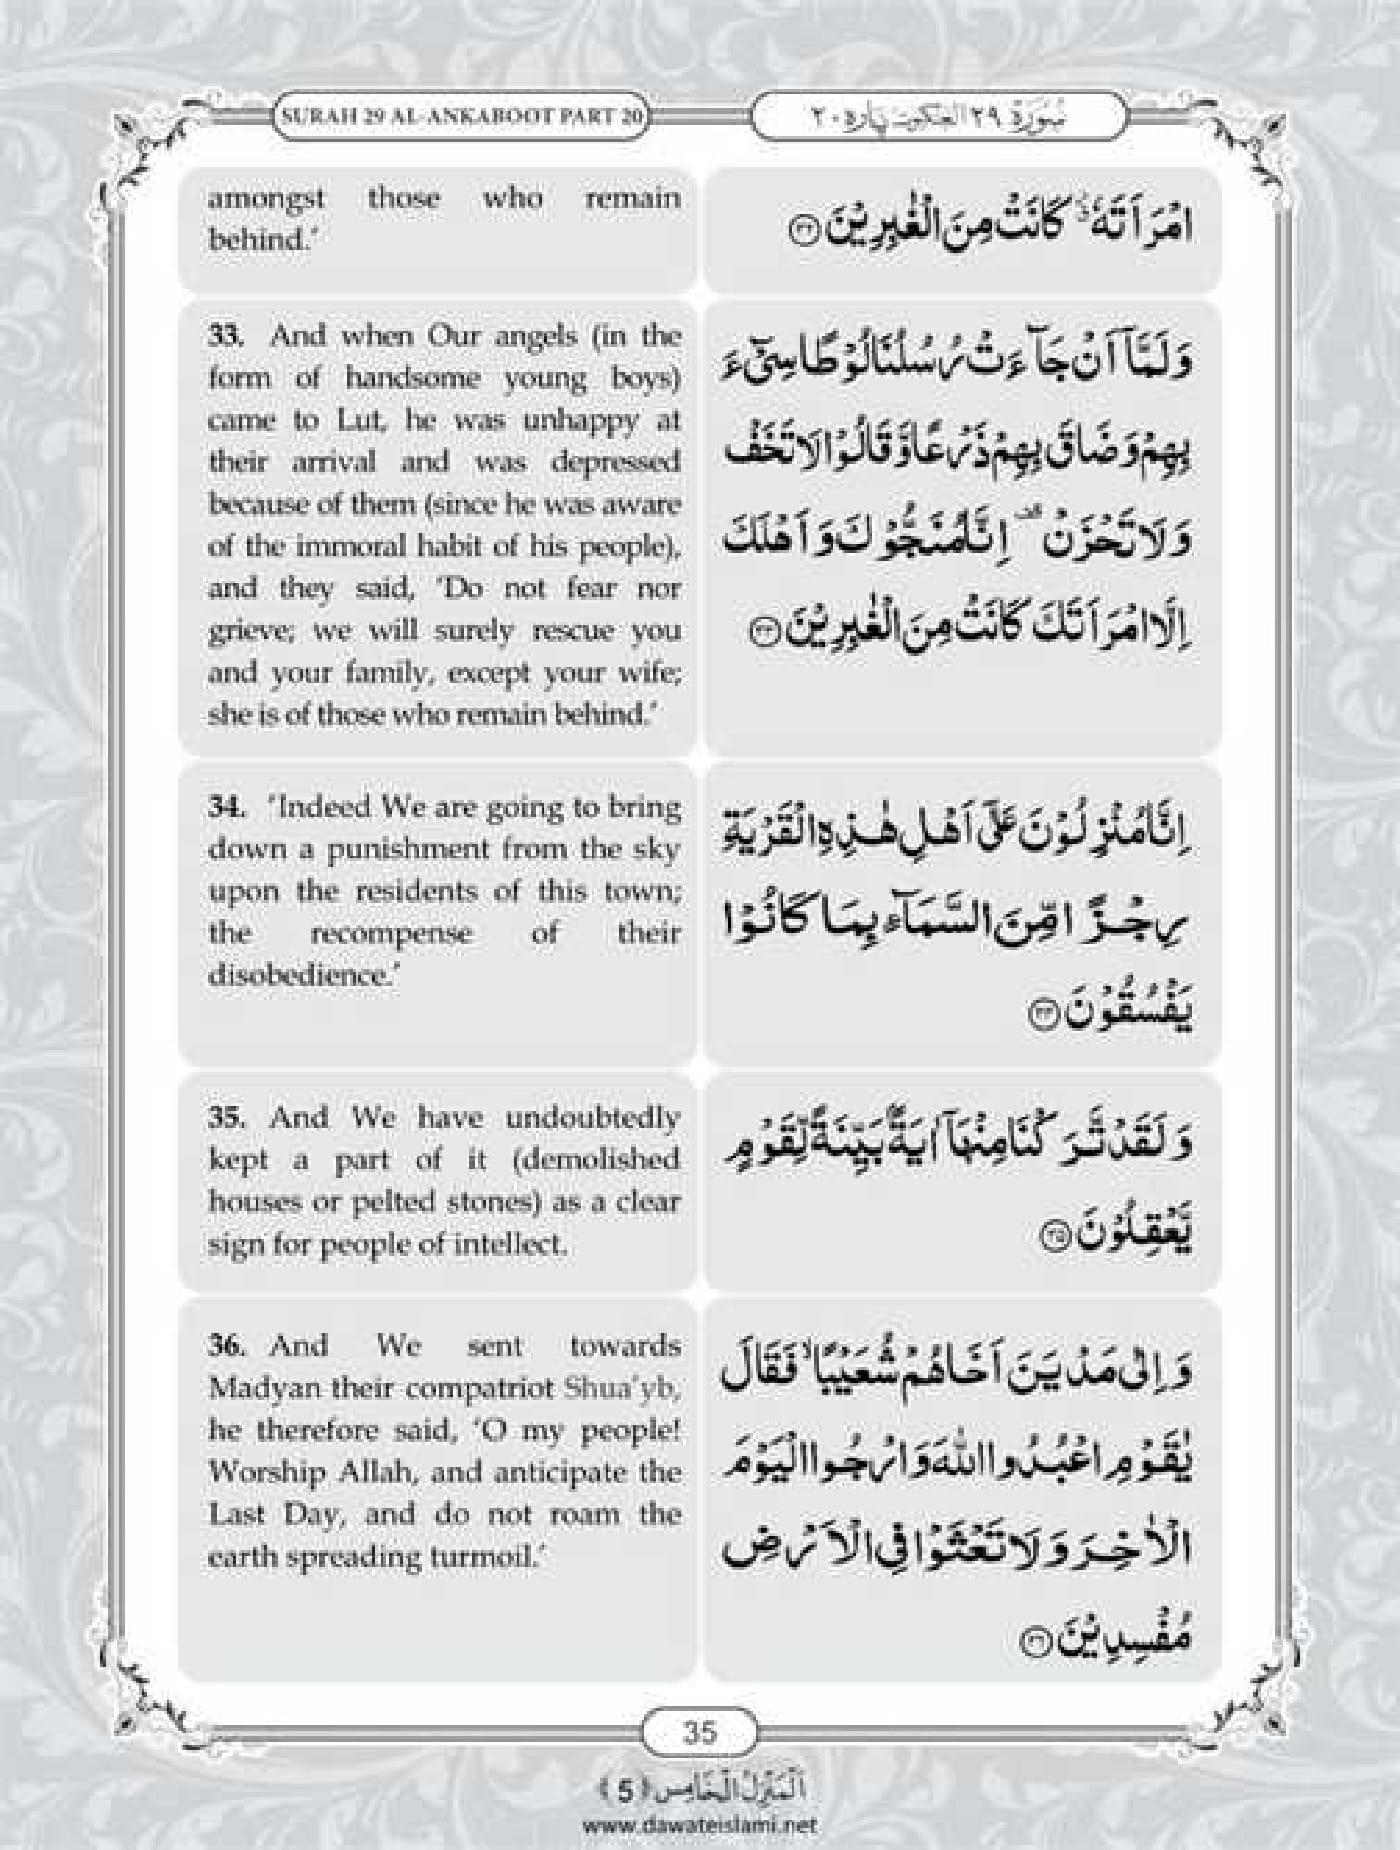 SURAH 29 AL-ANKABOOT PART 20
سُوْرَة ٢٩ العنكبوت پاره ٢٠
amongst those who remain
behind.’
امْرَاَتَهٗ ۫ۗ كَانَتْ مِنَ الْغٰبِرِیْنَ ۝۳۲
33. And when Our angels (in the
form of handsome young boys)
came to Lut, he was unhappy at
their arrival and was depressed
because of them (since he was aware
of the immoral habit of his people),
and they said, ‘Do not fear nor
grieve; we will surely rescue you
and your family, except your wife;
she is of those who remain behind.’
وَ لَمَّاۤ اَنْ جَآءَتْ رُسُلُنَا لُوْطًا سِیْٓءَ
بِهِمْ وَ ضَاقَ بِهِمْ ذَرْعًا وَّ قَالُوْا لَا تَخَفْ
وَ لَا تَحْزَنْ ۫ اِنَّا مُنَجُّوْكَ وَ اَهْلَكَ
اِلَّا امْرَاَتَكَ كَانَتْ مِنَ الْغٰبِرِیْنَ ۝۳۳
34. ‘Indeed We are going to bring
down a punishment from the sky
upon the residents of this town;
the recompense of their
disobedience.’
اِنَّا مُنْزِلُوْنَ عَلٰۤى اَهْلِ هٰذِهِ الْقَرْیَةِ
رِجْزًا مِّنَ السَّمَآءِ بِمَا كَانُوْا
یَفْسُقُوْنَ ۝۳۴
35. And We have undoubtedly
kept a part of it (demolished
houses or pelted stones) as a clear
sign for people of intellect.
وَ لَقَدْ تَّرَكْنَا مِنْهَاۤ اٰیَةًۢ بَیِّنَةً لِّقَوْمٍ
یَّعْقِلُوْنَ ۝۳۵
36. And We sent towards
Madyan their compatriot Shua’yb,
he therefore said, ‘O my people!
Worship Allah, and anticipate the
Last Day, and do not roam the
earth spreading turmoil.’
وَ اِلٰى مَدْیَنَ اَخَاهُمْ شُعَیْبًا ۙ فَقَالَ
یٰقَوْمِ اعْبُدُوا اللّٰهَ وَ ارْجُوا الْیَوْمَ
الْاٰخِرَ وَ لَا تَعْثَوْا فِی الْاَرْضِ
مُفْسِدِیْنَ ۝۳۶
35
اَلْمَنْزِلُ الْخَامِس ﴿5﴾
www.dawateislami.net